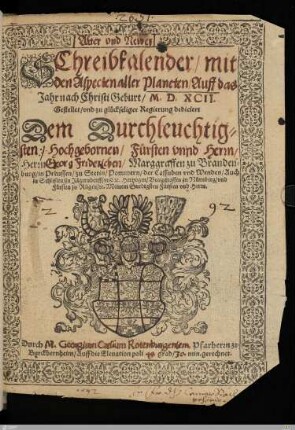 Alter und Newer
Schreibkalender/ mit
den Aspecten aller Planeten/ Auff das
Jahr nach Christi Geburt/ M. D. XCII.
Gestellet/ und zu glückseliger Regierung dedicieret
Dem Durchleuchtig-
sten/ Hochgebornen/ Fürsten unnd Herrn/
Herrn Georg Friderichen/ Marggraffen zu Branden-
burg/ in Preussen/ zu Stettin/ Pommern/ der Cassuben und Wenden/ Auch
in Schlesien zu Jägerndorff/ Hertzogen/ Burggraffen zu Nürmberg/ und
Fürsten zu Rügen/ Meinem Gnedigsten Fürsten und Herrn.
92
Durch M. Georgium Caesium Rotenburgensem, Pfarherrn zu
Burckbernheim/ Auff die Elevation poli 49 grad/ 30. min. gerichtet.